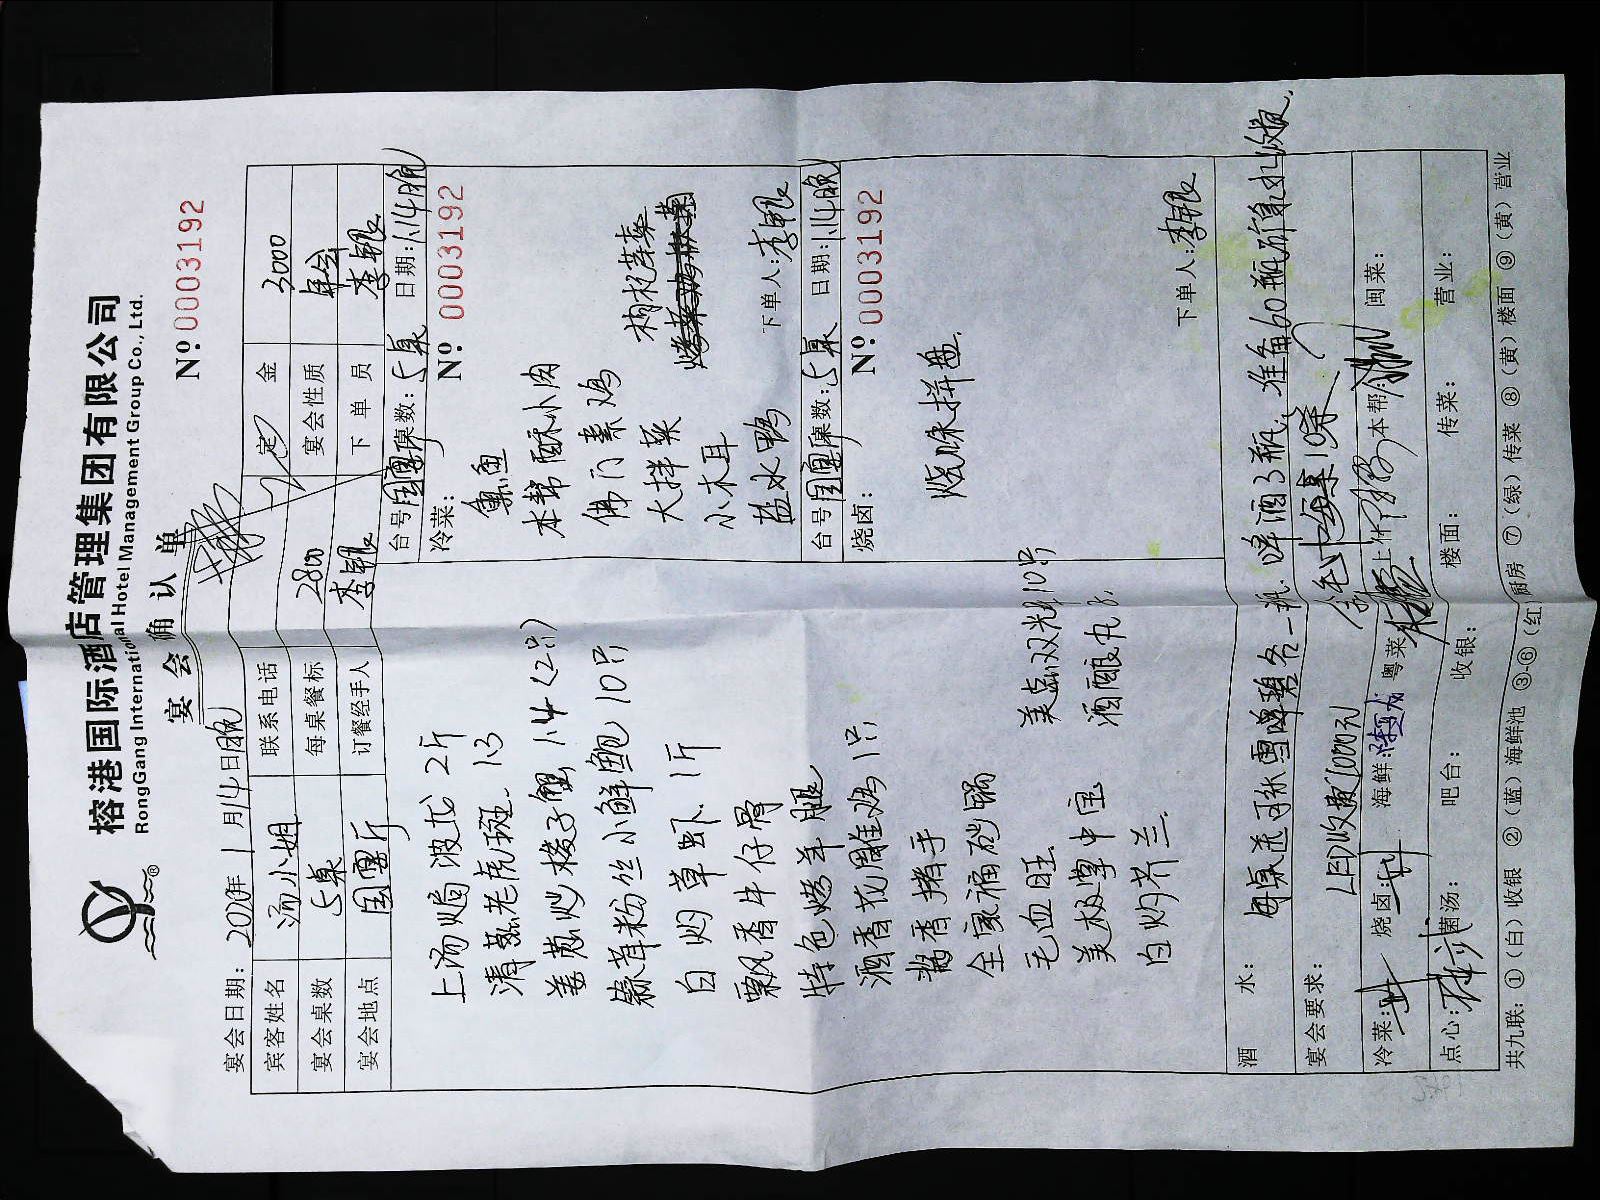 榕港国际酒店管理集团有限公司
RongGang International Hotel Management Group Co., Ltd.
宴会确认单
Nº 0003192
宴会日期：2020年1月14日晚
宾客姓名 汤小姐 联系电话 定金 3000
宴会桌数 5桌 每桌餐标 2800 宴会性质 年会
宴会地点 国宴厅 订餐经手人 李银 下单员 李银
上汤焗波龙 2斤
清蒸老虎斑 1.3
姜葱炒梭子蟹 1.4（2只）
蒜茸粉丝小鲜鲍 10只
白灼草虾 1斤
飘香牛仔骨
特色烤羊腿
酒香花雕鸡 1只
酱香猪手
全家福砂锅
毛血旺 美点双辉10只
美极掌中宝 酒酿丸子
白灼芥兰
台号 国宴厅 桌数：5桌 日期：1.14晚
冷菜： Nº 0003192
熏鱼
本帮酥小肉
佛门素鸡
大拌菜 枸杞菜
小木耳
盐水鸭 下单人：李银
台号 国宴厅 桌数：5桌 日期：1.14晚
烧卤： Nº 0003192
烧味拼盘
下单人：李银
酒水： 每桌送可乐雪碧各一瓶 啤酒3瓶，准备60瓶
宴会要求： LED收费1000元
冷菜： 烧卤： 海鲜： 粤菜： 上什： 本帮： 闽菜：
点心： 菌汤： 吧台： 收银： 楼面： 传菜： 营业：
共九联：①（白）收银 ②（蓝）海鲜池 ③-⑥（红）厨房 ⑦（绿）传菜 ⑧（黄）楼面 ⑨（黄）营业